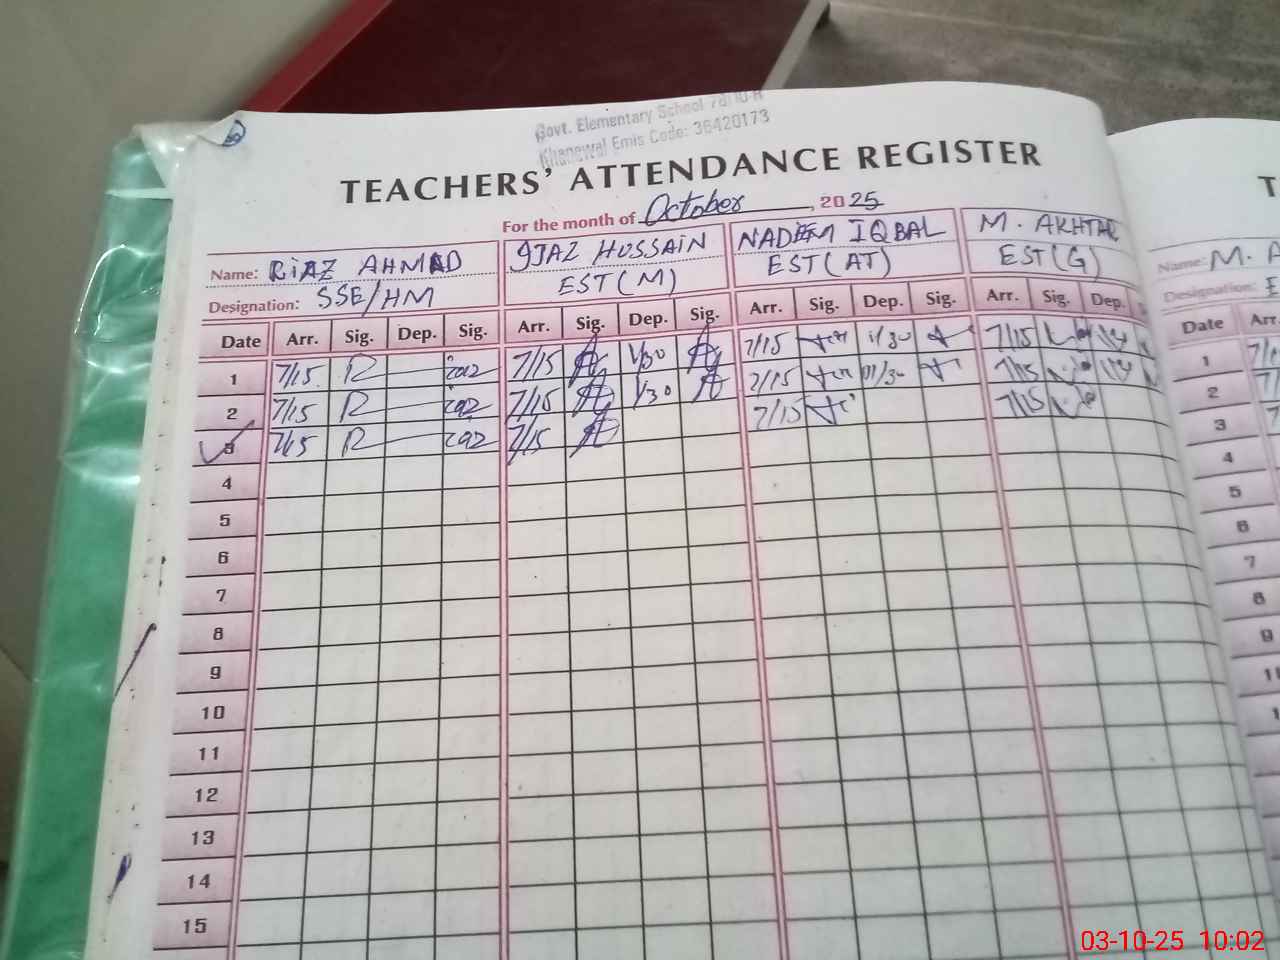 Govt. Elementary School 78/10-R
Khanewal Emis Code: 36420173
TEACHERS' ATTENDANCE REGISTER
For the month of October, 2025
Name: RIAZ AHMAD IJAZ HUSSAIN NADEEM IQBAL M. AKHTAR
Designation: SSE/HM EST(M) EST(AT) EST(G)
Date Arr. Sig. Dep. Sig. Arr. Sig. Dep. Sig. Arr. Sig. Dep. Sig. Arr. Sig. Dep.
1 7/15 R 7/15 1/30 7/15 1/30 7/15
2 7/15 R 7/15 1/30 7/15 01/30 7/15
3 7/15 R 7/15 7/15 7/15
4
5
6
7
8
9
10
11
12
13
14
15
T
Name: M. A
Designation: E
Date Arr.
1
2
3
4
5
6
7
8
9
03-10-25 10:02